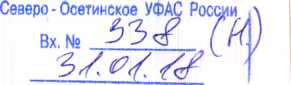 Северо - Осетинское УФАС России
Вх. № 338 (Н)
31.01.18